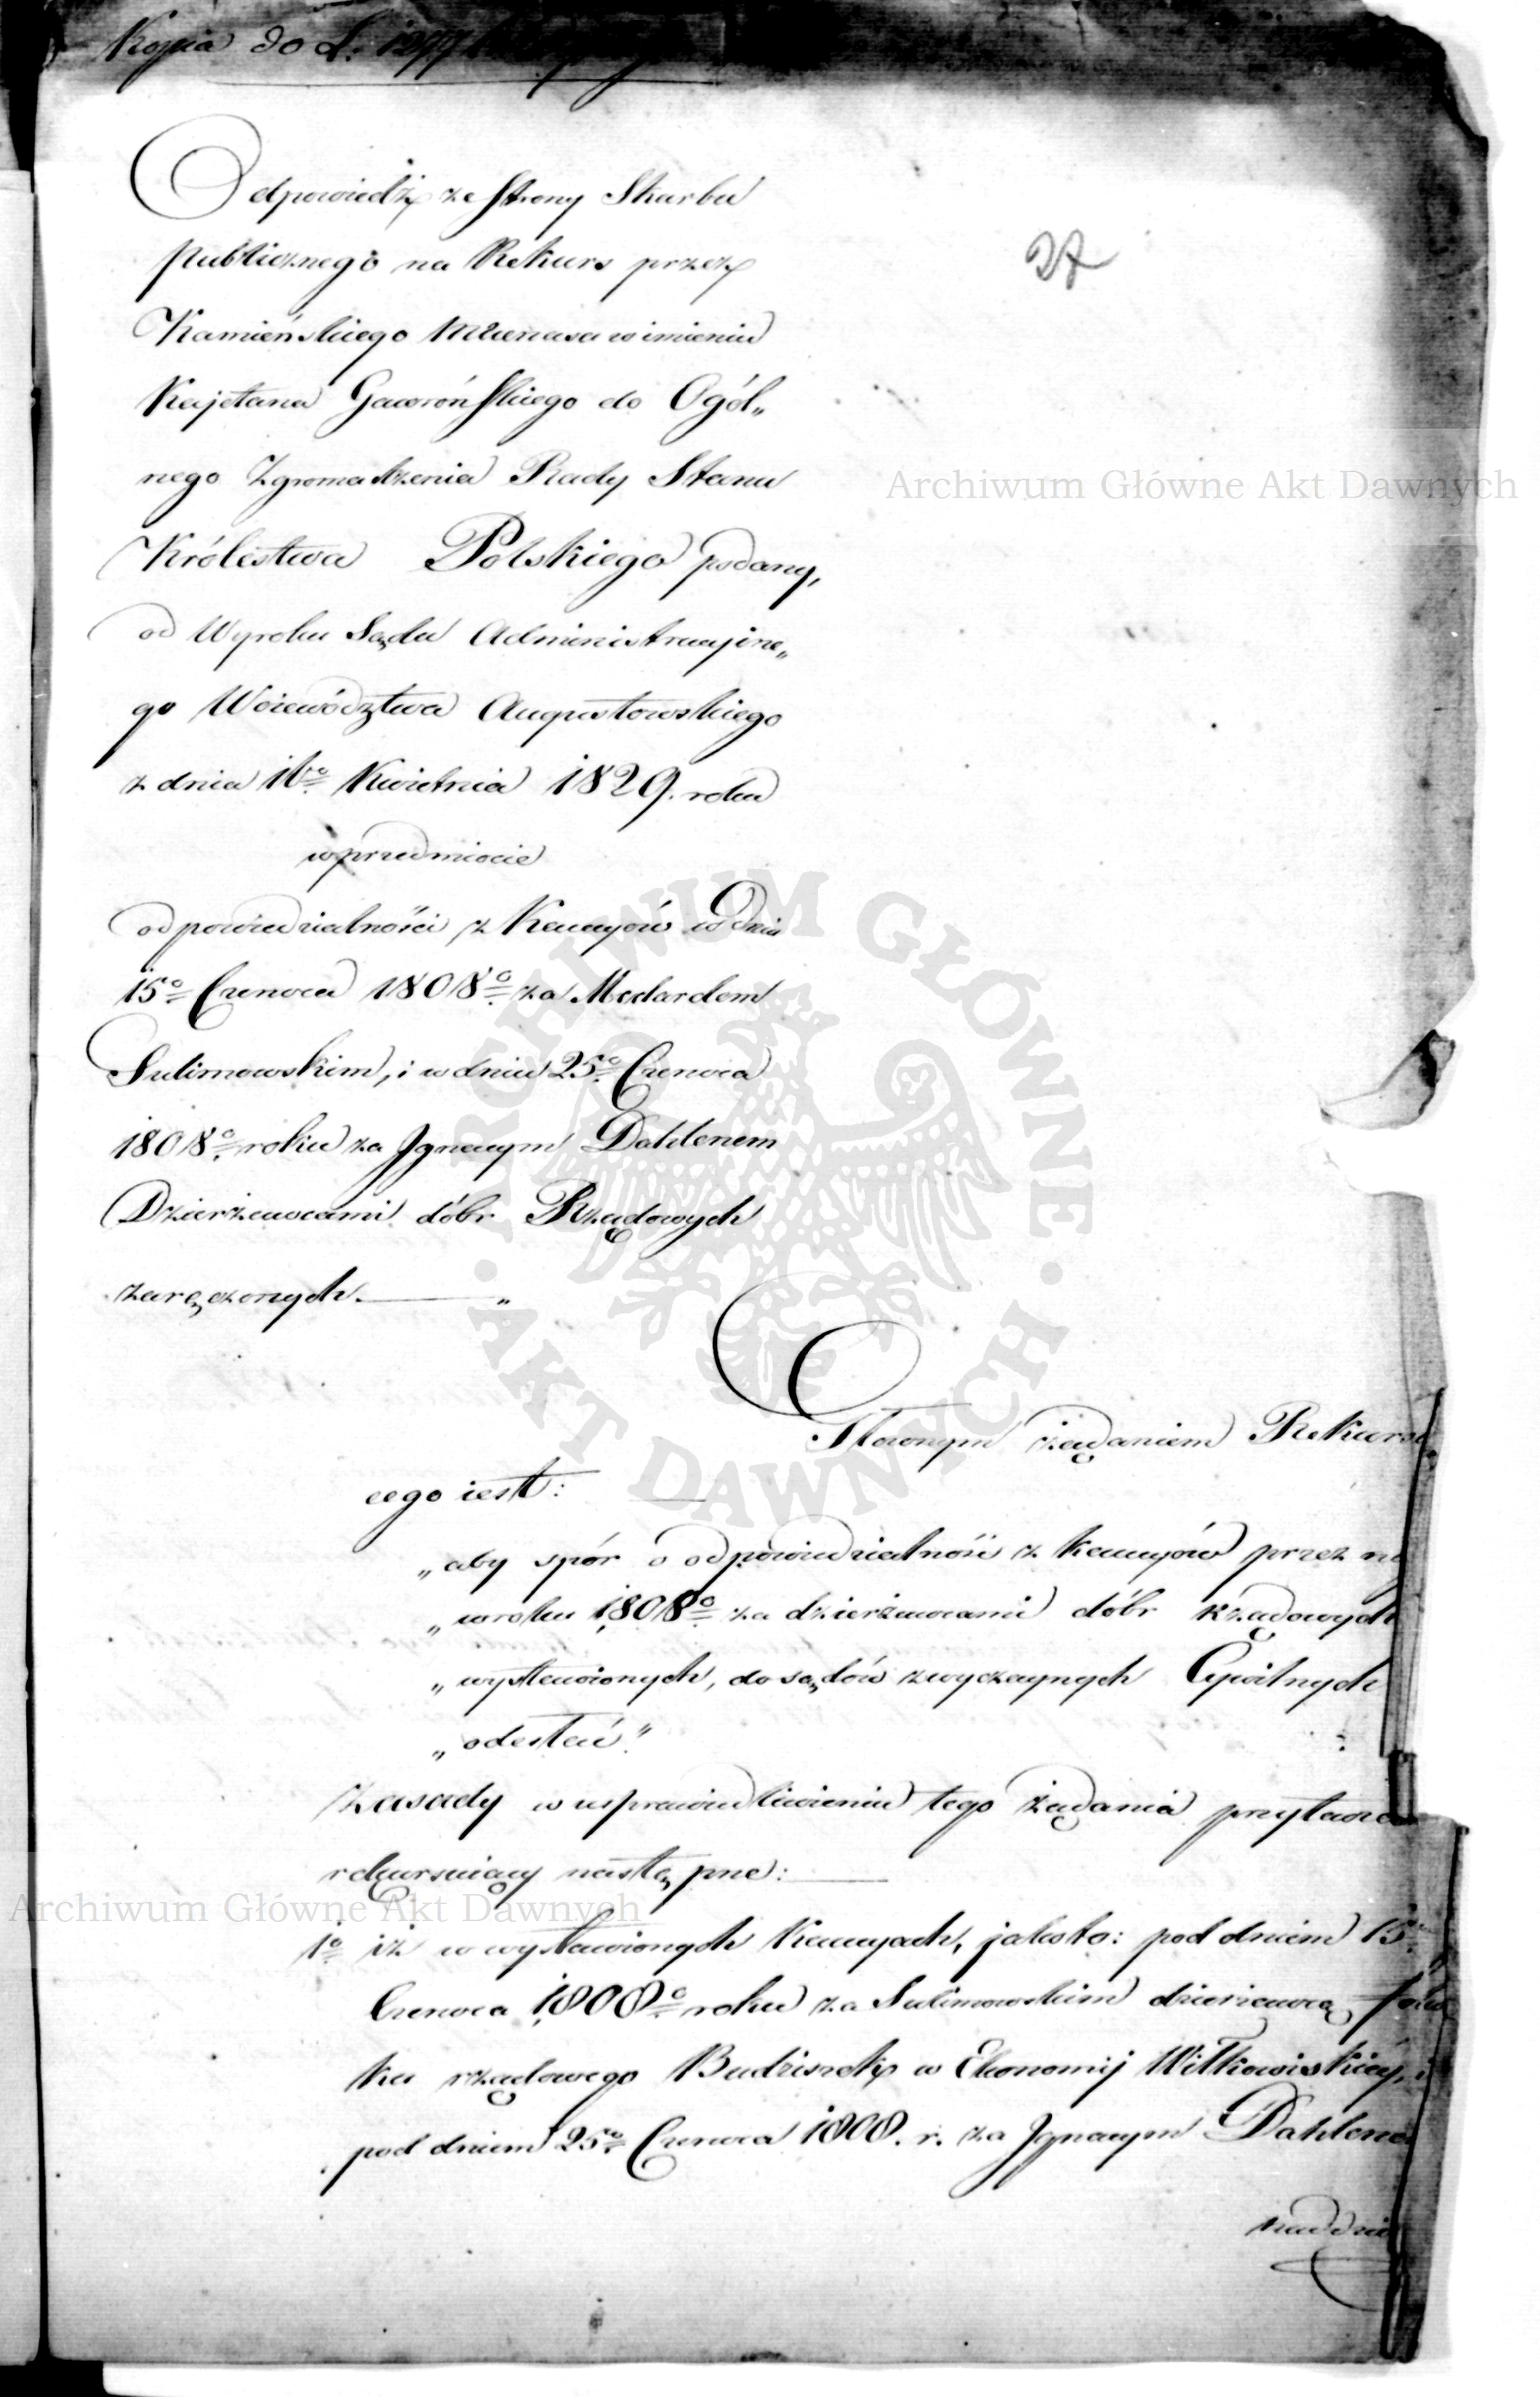 Kopia do L.
Odpowiedź ze strony Skarbu
publicznego na Rekurs przez
Kamieńskiego Mecenasa w imieniu
Kajetana Gawrońskiego do Ogól„
nego Zgromadzenia Rady Stanu
Królestwa Polskiego podany,
od Wyroku Sądu Administracyjne„
go Woiewództwa Augustowskiego
z dnia 16º Kwietnia 1829. roku
w przedmiocie
odpowiedzialności z Kaucyów w dniu
15º Czerwca 1808º za Medardem
Sulimowskim, i w dniu 25º Czerwca
1808º roku za Jgnacym Dahlenem
Dzierżawcami dóbr Rządowych
zaręczonych. „
27
Głównym żądaniem Rekursu
cego iest:
„aby spór o odpowiedzialność z kaucyów przez
„w roku 1808º za dzierżawcami dóbr rządowych
„wystawionych, do sądów zwyczaynych Cywilnych
„odesłać."
Zasady w usprawiedliwieniu tego żądania przytacza
rekursuiący następne:
1º iż w wystawionych Kaucyach, jakoto: pod dniem 15º
Czerwca 1808º roku za Sulimowskim dzierżawcą folw
ku rządowego Budziszek w Ekonomij Witkowiskiéy, i
pod dniem 25º Czerwca 1808. r. za Jgnacym Dahlene
naddzie
Archiwum Główne Akt Dawnych
Archiwum Główne Akt Dawnych
ARCHIWUM GŁÓWNE · AKT DAWNYCH ·